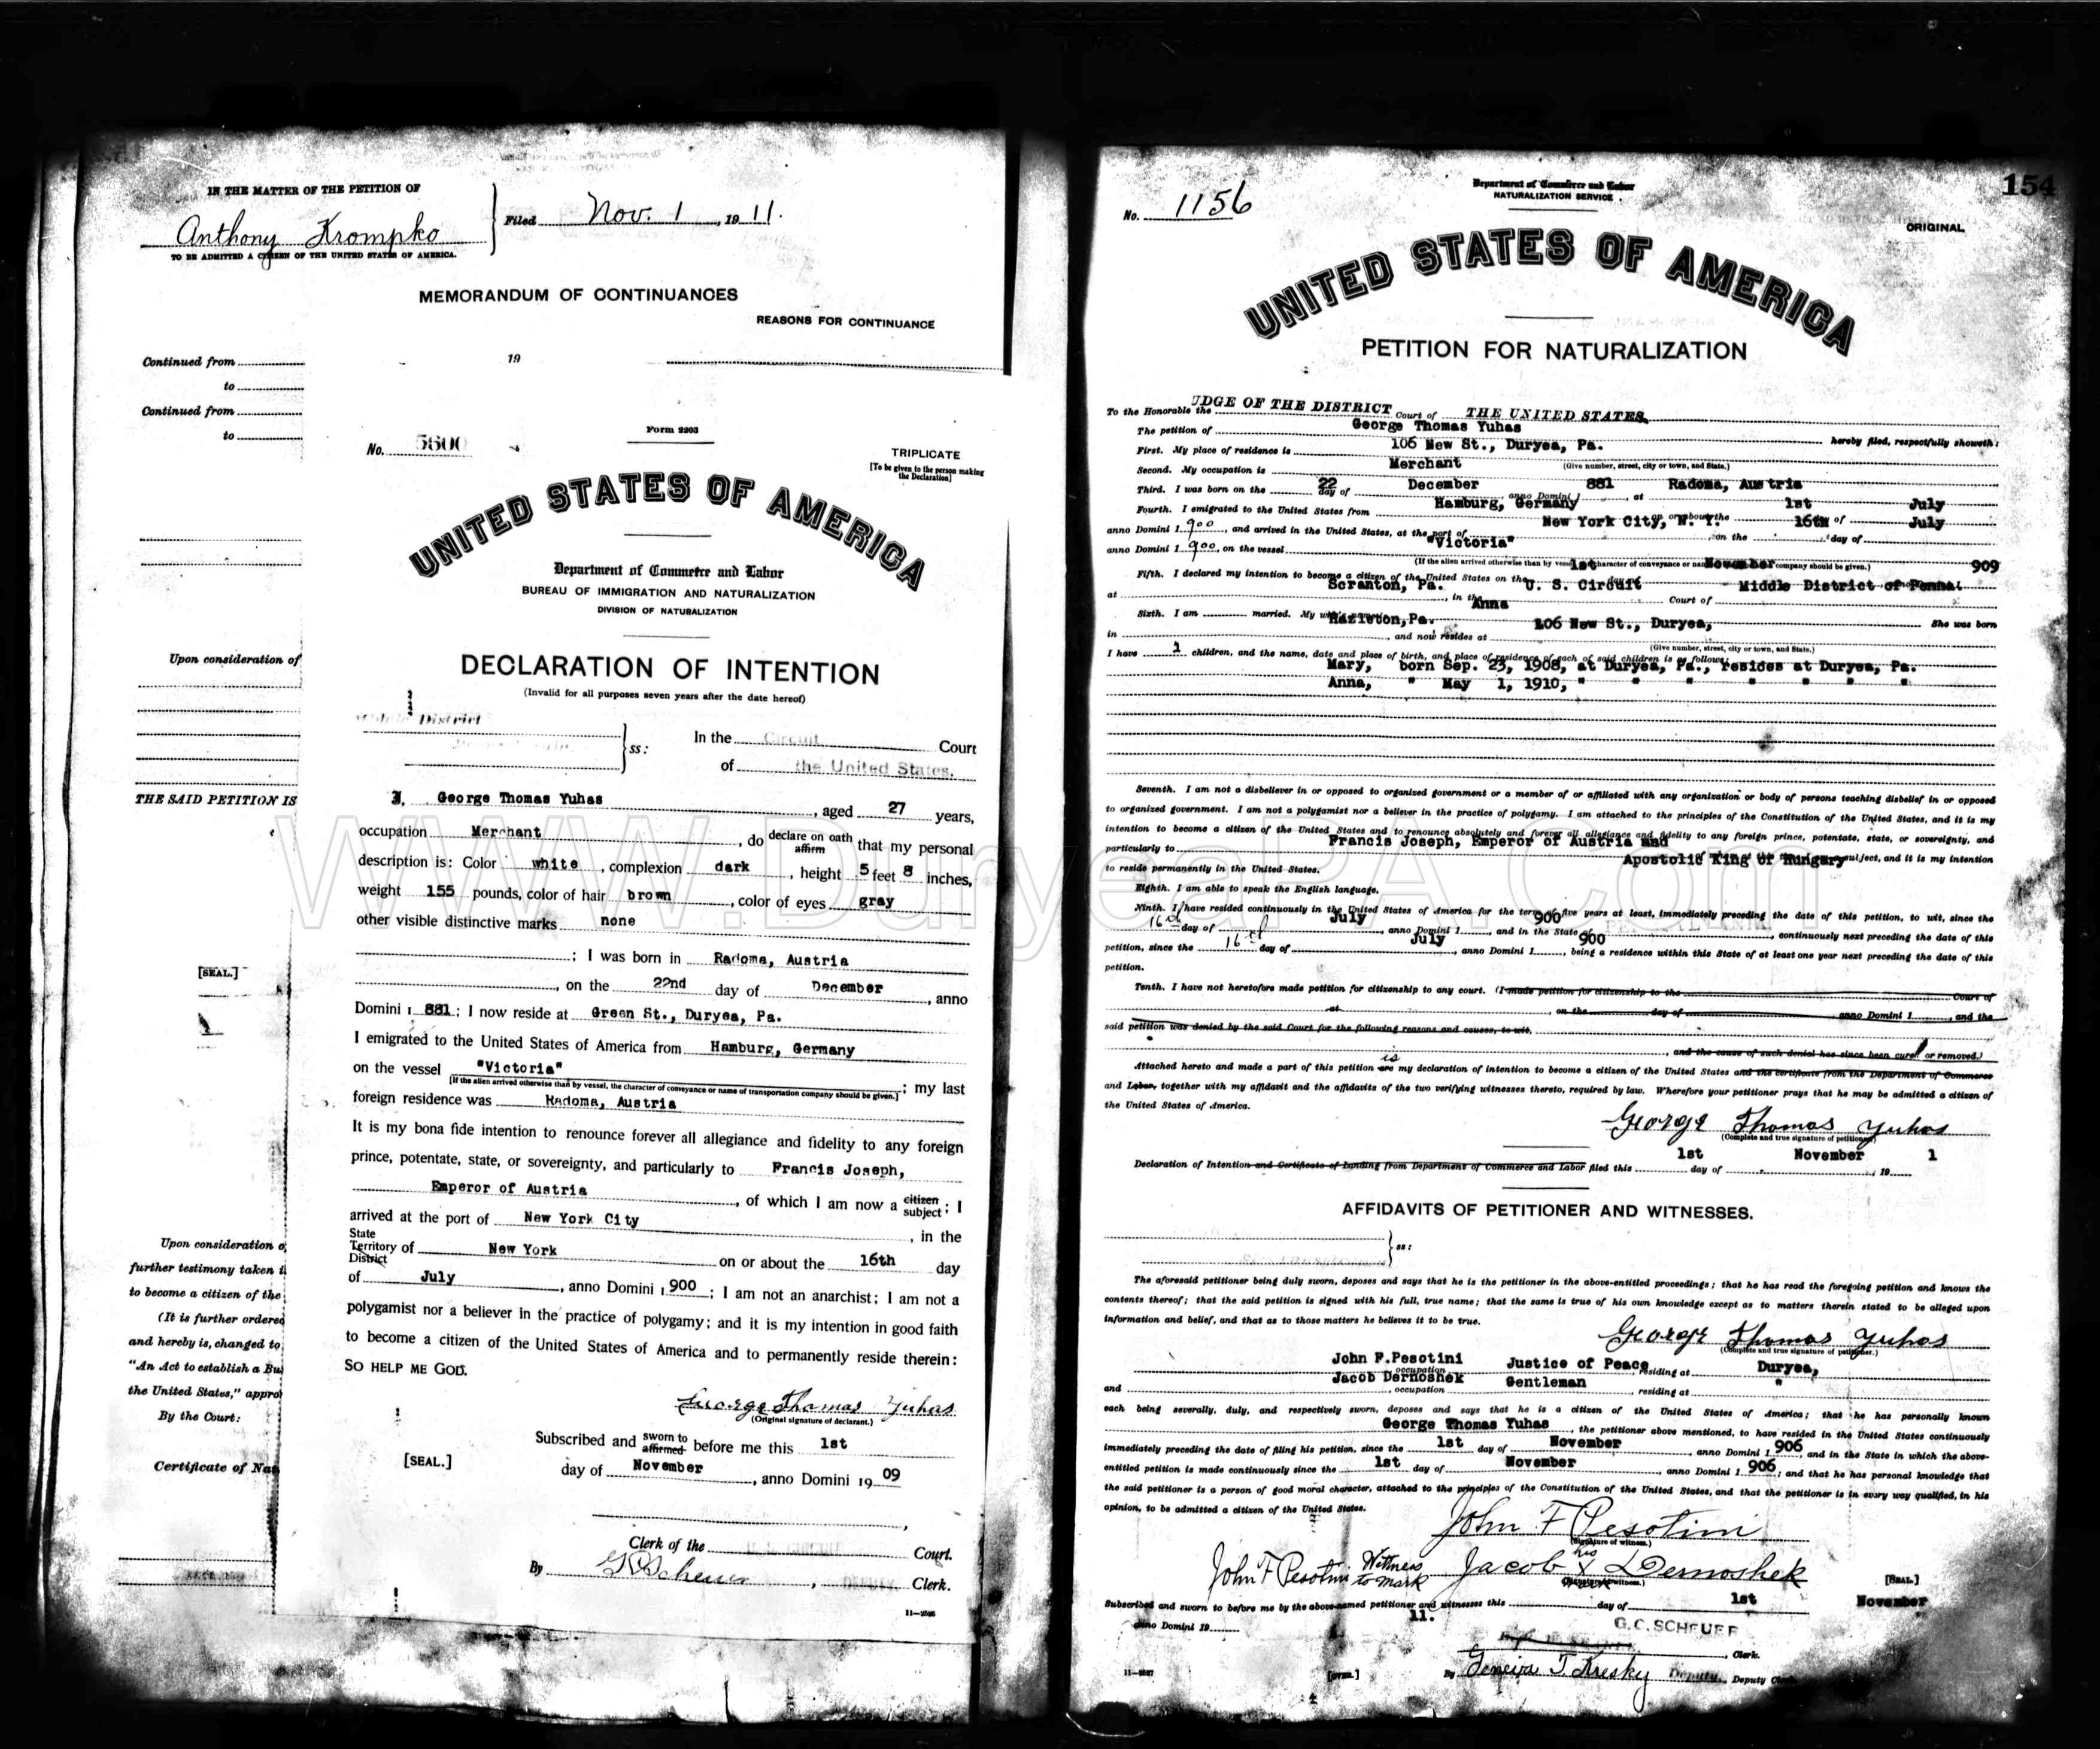 IN THE MATTER OF THE PETITION OF
Anthony Krompko
TO BE ADMITTED A CITIZEN OF THE UNITED STATES OF AMERICA.
Filed Nov. 1, 1911.
MEMORANDUM OF CONTINUANCES
REASONS FOR CONTINUANCE
Continued from
19
to
Continued from
to
Upon consideration of
THE SAID PETITION IS
[SEAL.]
Upon consideration o
further testimony taken
to become a citizen of the
(It is further ordered
and hereby is, changed to
"An Act to establish a Bu
the United States," appro
By the Court:
Certificate of Na
Form 2203
No. 5600
TRIPLICATE
[To be given to the person making
the Declaration]
UNITED STATES OF AMERICA
Department of Commerce and Labor
BUREAU OF IMMIGRATION AND NATURALIZATION
DIVISION OF NATURALIZATION
DECLARATION OF INTENTION
(Invalid for all purposes seven years after the date hereof)
District
ss:
In the Circuit Court
of the United States.
I, George Thomas Yuhas, aged 27 years,
occupation Merchant, do declare on oath affirm that my personal
description is: Color white, complexion dark, height 5 feet 8 inches,
weight 155 pounds, color of hair brown, color of eyes gray
other visible distinctive marks none
; I was born in Radoma, Austria
, on the 22nd day of December, anno
Domini 1 881; I now reside at Green St., Duryea, Pa.
I emigrated to the United States of America from Hamburg, Germany
on the vessel "Victoria"; my last
[If the alien arrived otherwise than by vessel, the character of conveyance or name of transportation company should be given.]
foreign residence was Radoma, Austria
It is my bona fide intention to renounce forever all allegiance and fidelity to any foreign
prince, potentate, state, or sovereignty, and particularly to Francis Joseph,
Emperor of Austria, of which I am now a citizen subject; I
arrived at the port of New York City, in the
State Territory District of New York on or about the 16th day
of July, anno Domini 1 900; I am not an anarchist; I am not a
polygamist nor a believer in the practice of polygamy; and it is my intention in good faith
to become a citizen of the United States of America and to permanently reside therein:
SO HELP ME GOD.
George Thomas Yuhas
(Original signature of declarant.)
Subscribed and sworn to affirmed before me this 1st
[SEAL.]
day of November, anno Domini 19 09
Clerk of the Court.
By G C Scheuer, Clerk.
154
Department of Commerce and Labor
NATURALIZATION SERVICE
No. 1156
ORIGINAL
UNITED STATES OF AMERICA
PETITION FOR NATURALIZATION
To the Honorable the UDGE OF THE DISTRICT Court of THE UNITED STATES
The petition of George Thomas Yuhas hereby filed, respectfully showeth:
First. My place of residence is 106 New St., Duryea, Pa.
(Give number, street, city or town, and State.)
Second. My occupation is Merchant
Third. I was born on the 22 day of December anno Domini 1 881, at Radoma, Austria
Fourth. I emigrated to the United States from Hamburg, Germany, on or about the 1st day of July
anno Domini 1 900, and arrived in the United States, at the port of New York City, N. Y. on the 16th day of July
anno Domini 1 900, on the vessel "Victoria"
(If the alien arrived otherwise than by vessel, the character of conveyance or name of transportation company should be given.)
Fifth. I declared my intention to become a citizen of the United States on the 1st November 909
at Scranton, Pa., in the U. S. Circuit Court of Middle District of Penna.
Sixth. I am married. My wife's name is Anna She was born
in Hazleton, Pa., and now resides at 106 New St., Duryea,
(Give number, street, city or town, and State.)
I have 2 children, and the name, date and place of birth, and place of residence of each of said children is as follows:
Mary, born Sep. 23, 1908, at Duryea, Pa., resides at Duryea, Pa.
Anna, " May 1, 1910, " " " " " "
Seventh. I am not a disbeliever in or opposed to organized government or a member of or affiliated with any organization or body of persons teaching disbelief in or opposed
to organized government. I am not a polygamist nor a believer in the practice of polygamy. I am attached to the principles of the Constitution of the United States, and it is my
intention to become a citizen of the United States and to renounce absolutely and forever all allegiance and fidelity to any foreign prince, potentate, state, or sovereignty, and
particularly to Francis Joseph, Emperor of Austria and
Apostolic King of Hungary subject, and it is my intention
to reside permanently in the United States.
Eighth. I am able to speak the English language.
Ninth. I have resided continuously in the United States of America for the term of five years at least, immediately preceding the date of this petition, to wit, since the
16th day of July, anno Domini 1 900, and in the State of, continuously next preceding the date of this
petition, since the 16th day of July, anno Domini 1 900, being a residence within this State of at least one year next preceding the date of this
petition.
Tenth. I have not heretofore made petition for citizenship to any court. (I made petition for citizenship to the Court of
at, on the day of anno Domini 1, and the
said petition was denied by the said Court for the following reasons and causes, to wit,
, and the cause of such denial has since been cured or removed.)
Attached hereto and made a part of this petition are is my declaration of intention to become a citizen of the United States and the certificate from the Department of Commerce
and Labor, together with my affidavit and the affidavits of the two verifying witnesses thereto, required by law. Wherefore your petitioner prays that he may be admitted a citizen of
the United States of America.
George Thomas Yuhas
(Complete and true signature of petitioner.)
Declaration of Intention and Certificate of Landing from Department of Commerce and Labor filed this 1st day of November, 19 1
AFFIDAVITS OF PETITIONER AND WITNESSES.
ss:
The aforesaid petitioner being duly sworn, deposes and says that he is the petitioner in the above-entitled proceedings; that he has read the foregoing petition and knows the
contents thereof; that the said petition is signed with his full, true name; that the same is true of his own knowledge except as to matters therein stated to be alleged upon
information and belief, and that as to those matters he believes it to be true.
George Thomas Yuhas
(Complete and true signature of petitioner.)
John F.Pesotini, occupation Justice of Peace, residing at Duryea,
and Jacob Dernoshek, occupation Gentleman, residing at "
each being severally, duly, and respectively sworn, deposes and says that he is a citizen of the United States of America; that he has personally known
George Thomas Yuhas, the petitioner above mentioned, to have resided in the United States continuously
immediately preceding the date of filing his petition, since the 1st day of November, anno Domini 1 906, and in the State in which the above-
entitled petition is made continuously since the 1st day of November, anno Domini 1 906; and that he has personal knowledge that
the said petitioner is a person of good moral character, attached to the principles of the Constitution of the United States, and that the petitioner is in every way qualified, in his
opinion, to be admitted a citizen of the United States.
John F Pesotini
(Signature of witness.)
John F Pesotini Witness to mark Jacob his X Dernoshek
(Signature of witness.)
[SEAL.]
Subscribed and sworn to before me by the above-named petitioner and witnesses this 1st day of November
anno Domini 19 11.
G. C. SCHEUER
, Clerk.
[OVER.]
By Geneva T. Kresky Deputy, Deputy Clerk
WWW.DuryeaPA.Com